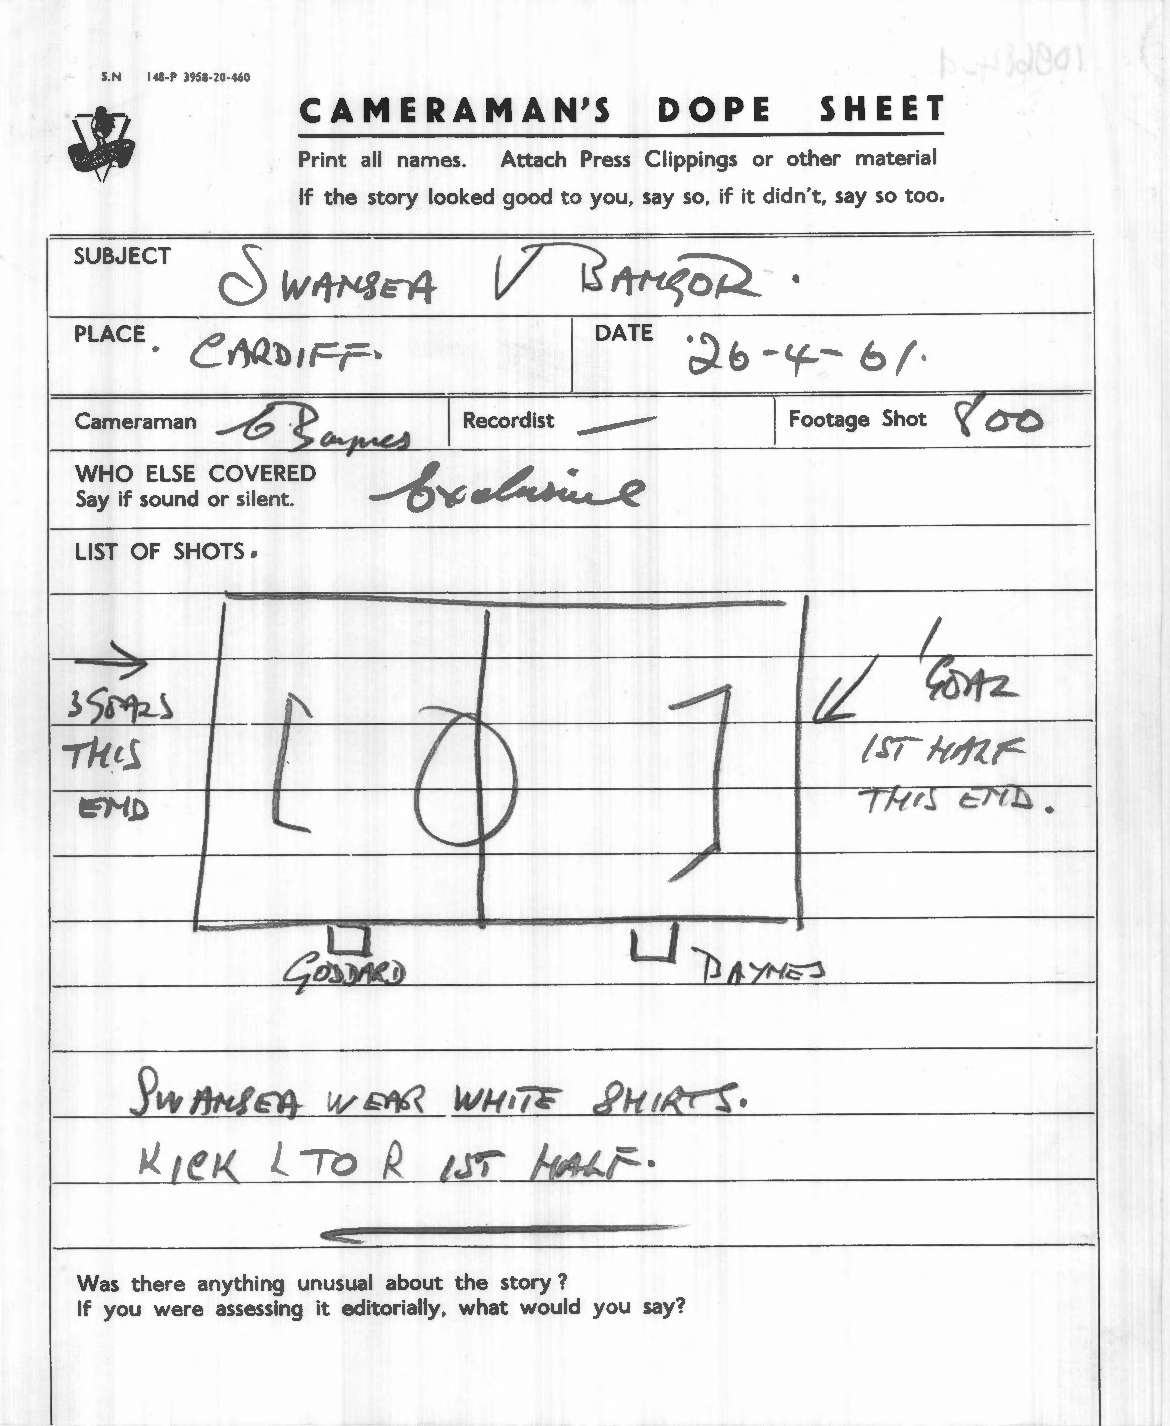 S.N 148-P 3958-20-460
CAMERAMAN'S DOPE SHEET
Print all names. Attach Press Clippings or other material
If the story looked good to you, say so, if it didn't, say so too.
SUBJECT SWANSEA V BANGOR.
PLACE. CARDIFF. DATE 26-4-61.
Cameraman G Baynes Recordist — Footage Shot 800
WHO ELSE COVERED
Say if sound or silent. Exclusive
LIST OF SHOTS.
3 GOALS
THIS
END
1 GOAL
1ST HALF
THIS END.
GODDARD BAYNES
SWANSEA WEAR WHITE SHIRTS.
KICK L TO R 1ST HALF.
Was there anything unusual about the story?
If you were assessing it editorially, what would you say?